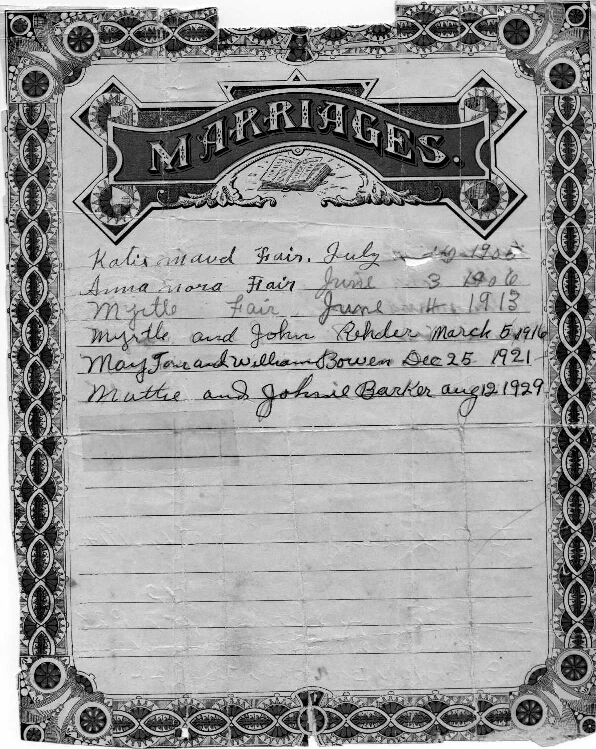 MARRIAGES.
Katie maud Fair. July 1905
Anna Nora Fair June 3 1906
Myrtle Fair June 4 1913
Myrtle and John Rehder March 5, 1916
May Fair and William Bowen Dec 25 1921
Mattie and Johnie Barker aug 12 1929